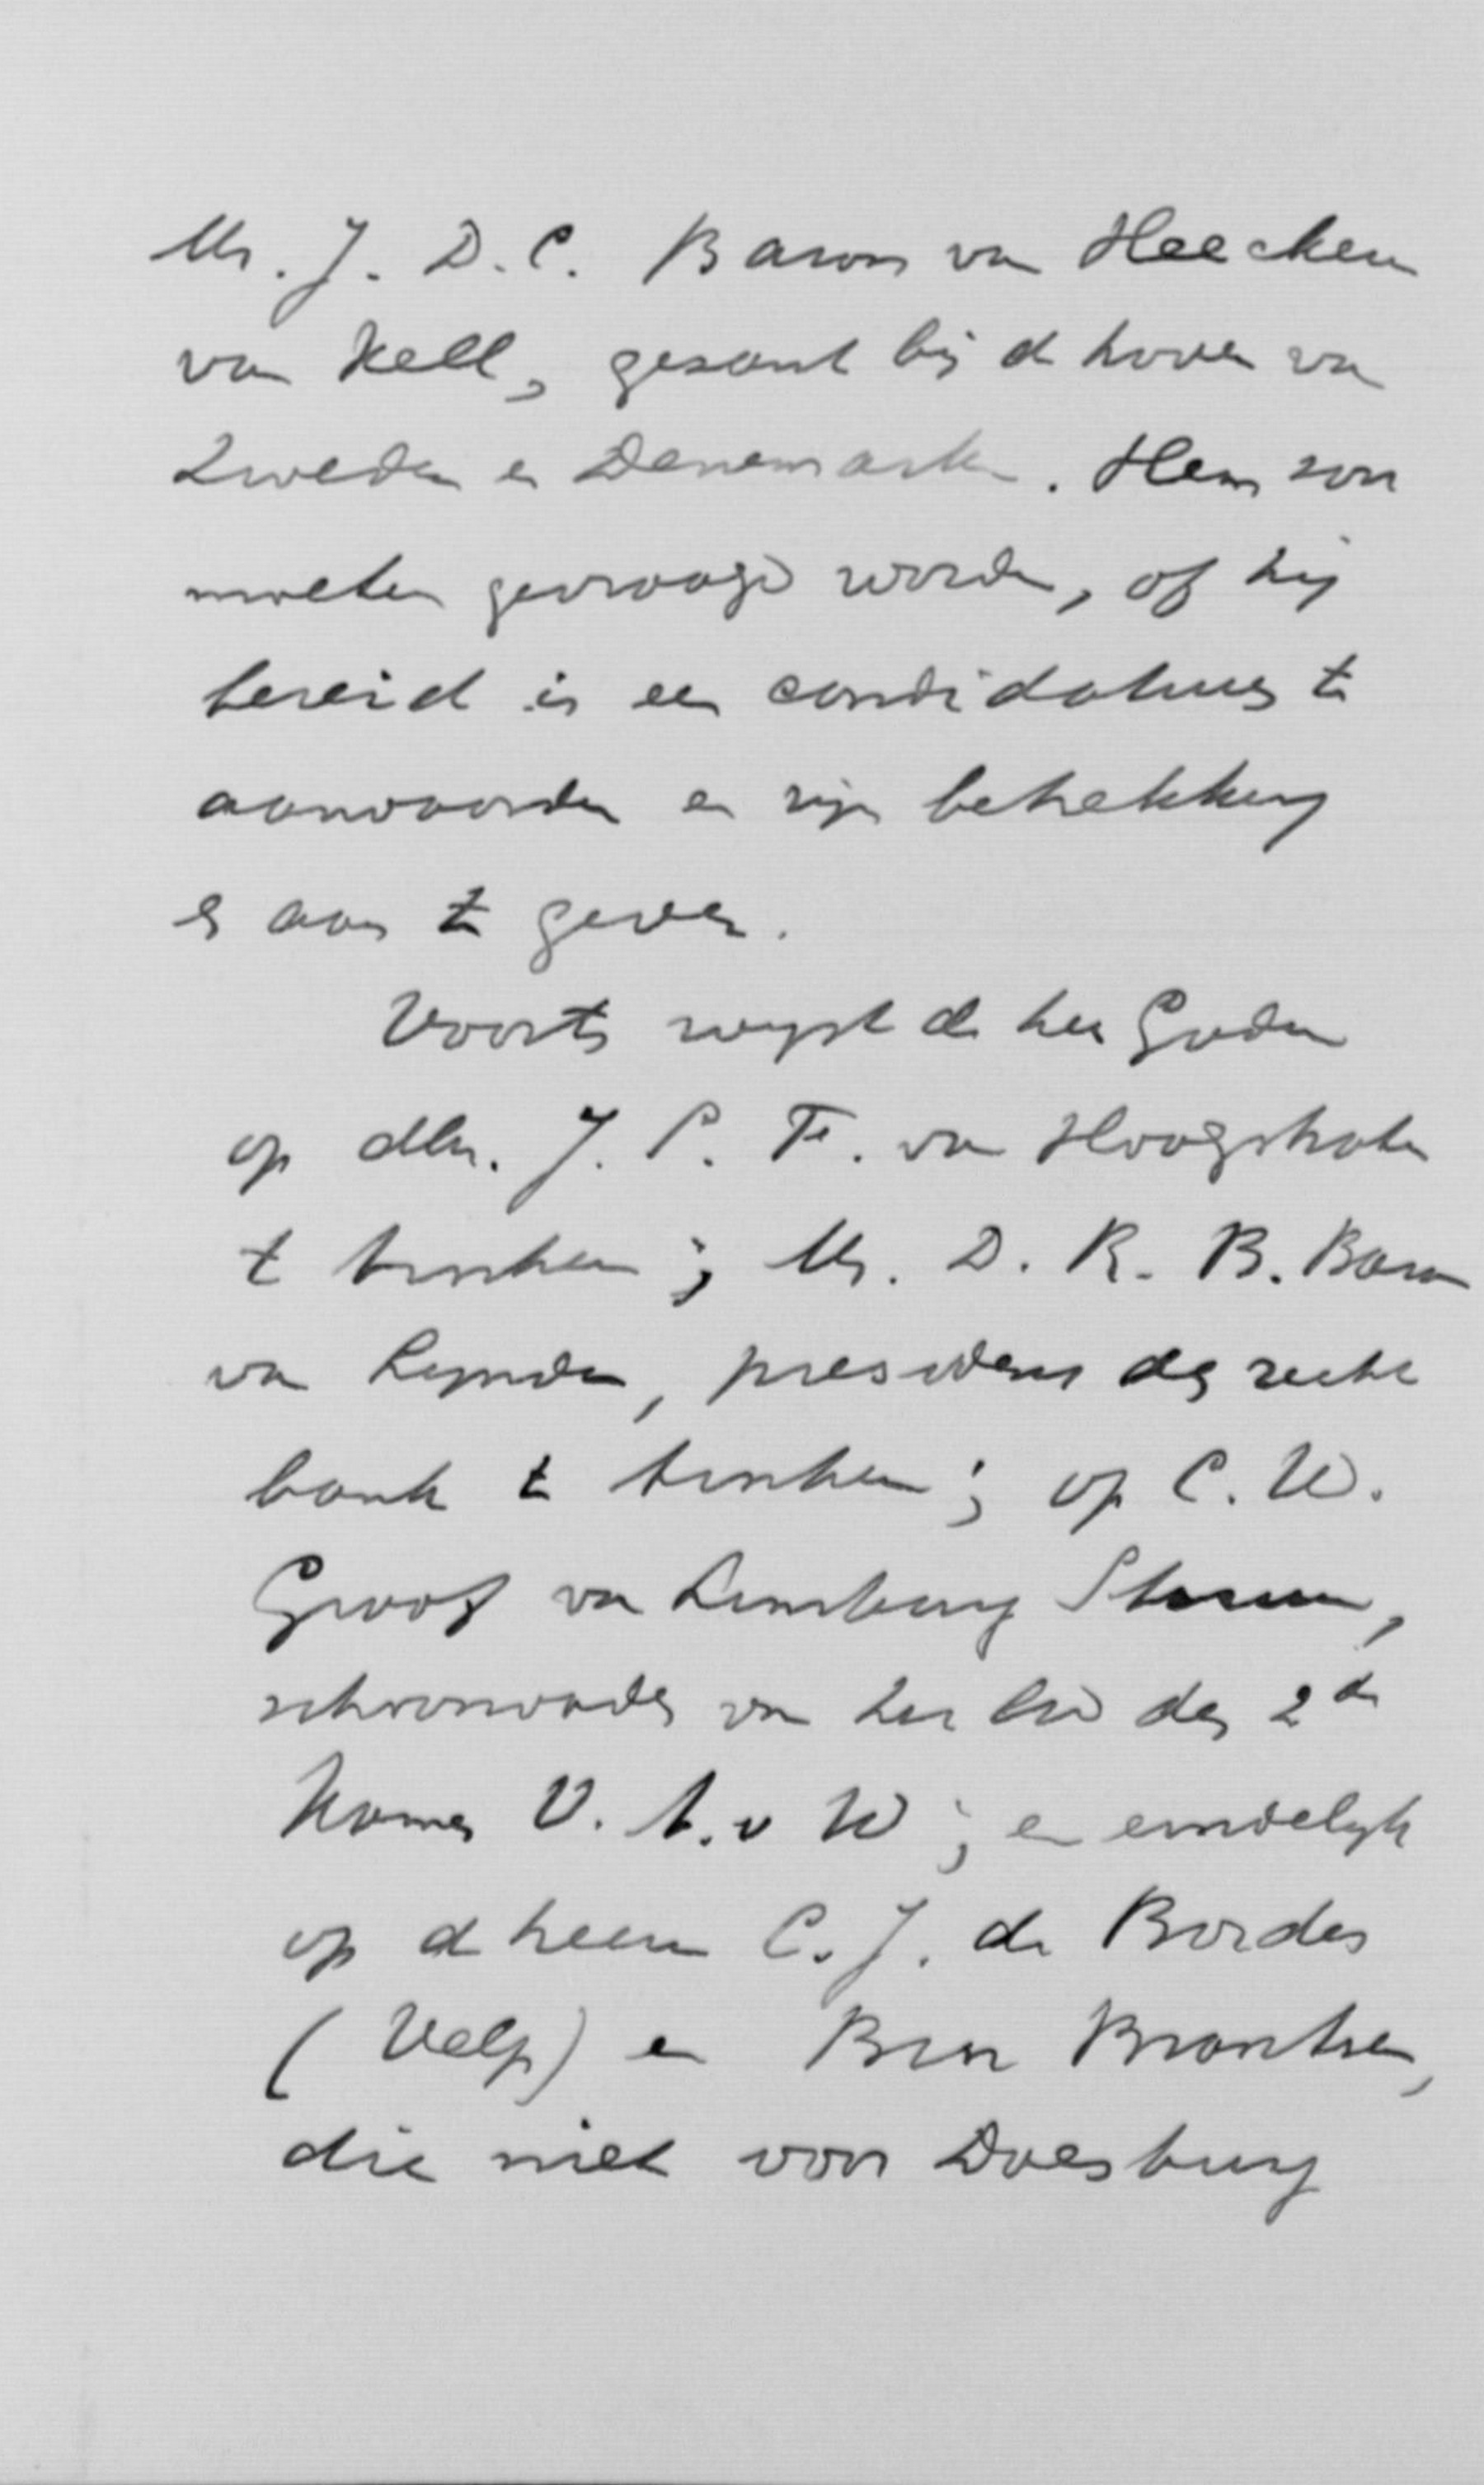 Mr. J. D. C. Baron van Heeckeren
van Kell, gezant bij de hoven van
Zweden en Denemarken. Hem zou
moeten gevraagd worden, of hij
bereid is een candidatuur te
aanvaarden en zijn betrekking
er aan te geven.
Voorts wijst de heer Goden
op Mr. J. P. Fr. van Hoogstraten
te Arnhem; Mr. D. R. B. Baron
van Lynden, president der recht
bank te Arnhem; op C. W.
Graaf van Limburg Stirum,
schoonvader van het lid der 2de
Kamer V. A. v W; en eindelijk
op de heeren C. J. de Bordes
(Velp) en Bon Brantsen,
die niet voor Doesburg